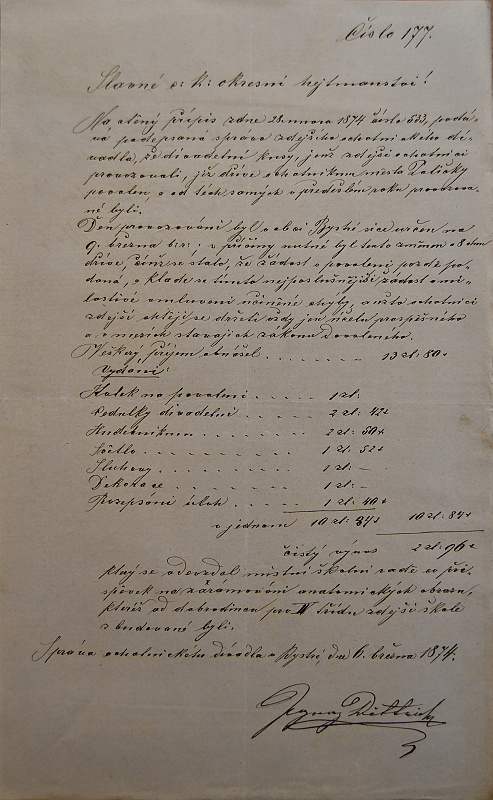 Číslo 177.
Slavné c: k: okresní hejtmanství!
Na ctěný přípis zdne 28. února 1874 číslo 533, podá-
vá podepsaná správa zdejšího ochotnického di-
vadla, že divadelní kusy, jenž zdejší ochotníci
provozovali, již dříve ochotníkům města Poličky
povolen, a od těch samých v předešlém roku provozova-
né byli.
Den provozování byl v obci Bystré sice určen na
9. března b: r: ; z příčiny nutné byl tento změněn o 8 dnů
dříve, čímž se stalo, že žádost o povolení pozdě po-
daná, a klade se tímto nejposlušnější žádost o mi-
lostivé omluvení učiněné chyby, a užto ochotníci
zdejší chtějí se držeti vždy jen účelu prospěšného
a v mezích stávajících zákonů dovoleného.
Veškerý příjem obnášel . . . . . . . 13 zl: 80 x
Vydání:
Kolek na povolení . . . . 1 zl:
Cedulky divadelní . . . . 2 zl: 42 x
Hudebníkům . . . . . . . 2 zl: 80 x
Světlo . . . . . . . . . 1 zl: 52 x
Sluhovy . . . . . . . . 1 zl: –
Dekorace . . . . . . . 1 zl: –
Rozepsání úloh . . . . 1 zl: 40 x
v jednom 10 zl: 84 x 10 zl: 84 x
čistý výnos 2 zl: 96 x
který se odevzdal místní školní radě co pří-
spěvek na zarámování anatomických obrazů,
kteréž od dobrodinců pro IV třídu zdejší škole
byli.
Správa ochotnického divadla v Bystré, dne 6. března 1874.
Ignaz Dittrich